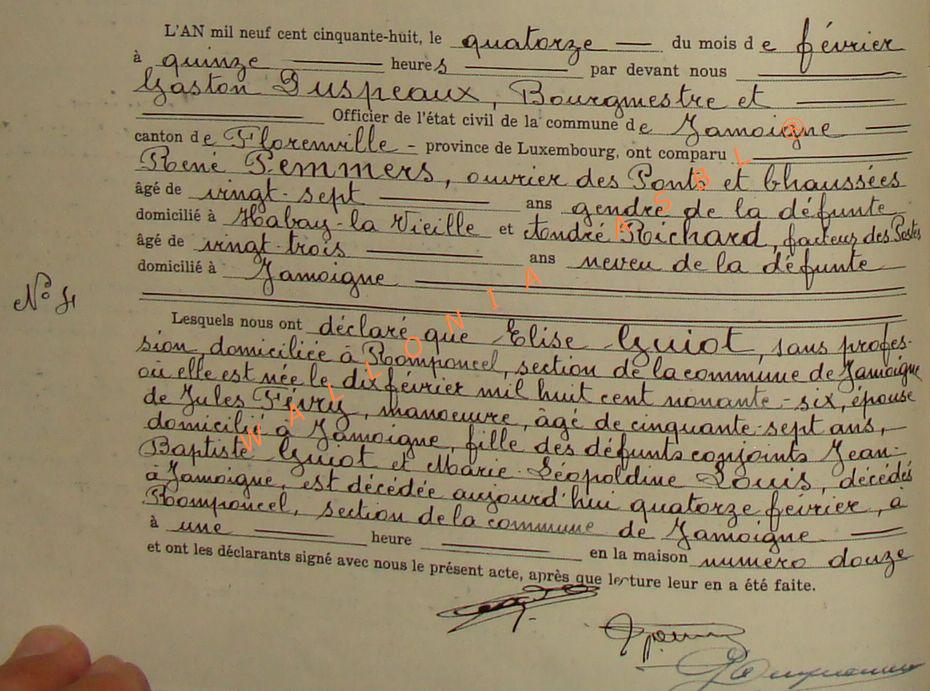 L'AN mil neuf cent cinquante-huit, le quatorze — du mois de février
à quinze — heures — par devant nous —
Gaston Duspeaux, Bourgmestre et —
— Officier de l'état civil de la commune de Jamoigne —
canton de Florenville - province de Luxembourg, ont comparu —
René Pemmers, ouvrier des Ponts et Chaussées
âgé de vingt-sept — ans gendre de la défunte
domicilié à Habay-la Vieille et André Richard, facteur des Postes
âgé de vingt-trois — ans neveu de la défunte
domicilié à Jamoigne —
N° 4
Lesquels nous ont déclaré que Elise Guiot, sans profes-
sion, domiciliée à Romponcel, section de la commune de Jamoigne
où elle est née le dix février mil huit cent nonante-six, épouse
de Jules Févry, manoeuvre, âgé de cinquante-sept ans,
domicilié à Jamoigne, fille des défunts conjoints Jean-
Baptiste Guiot et Marie-Léopoldine Louis, décédés
à Jamoigne, est décédée aujourd'hui quatorze février, à
Romponcel, section de la commune de Jamoigne —
à une — heure — en la maison numéro douze
et ont les déclarants signé avec nous le présent acte, après que lecture leur en a été faite.
WALLONIA ASBL ®